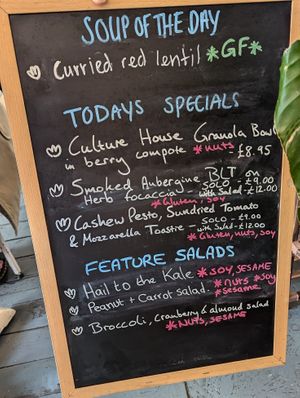 SOUP OF THE DAY
Curried red lentil *GF*
TODAYS SPECIALS
Culture House Granola Bowl
in berry compote *nuts - £8.95
Smoked Aubergine BLT on
Herb focaccia - SOLO - £9.00
with Salad - £12.00
*Gluten, soy
Cashew Pesto, Sundried Tomato
& Mozzarella Toastie - SOLO - £9.00
with Salad - £12.00
*Gluten, nuts, soy
FEATURE SALADS
Hail to the Kale *SOY, SESAME
Peanut + Carrot salad *nuts *soy
*Sesame
Broccoli, cranberry & almond salad
*NUTS, SESAME